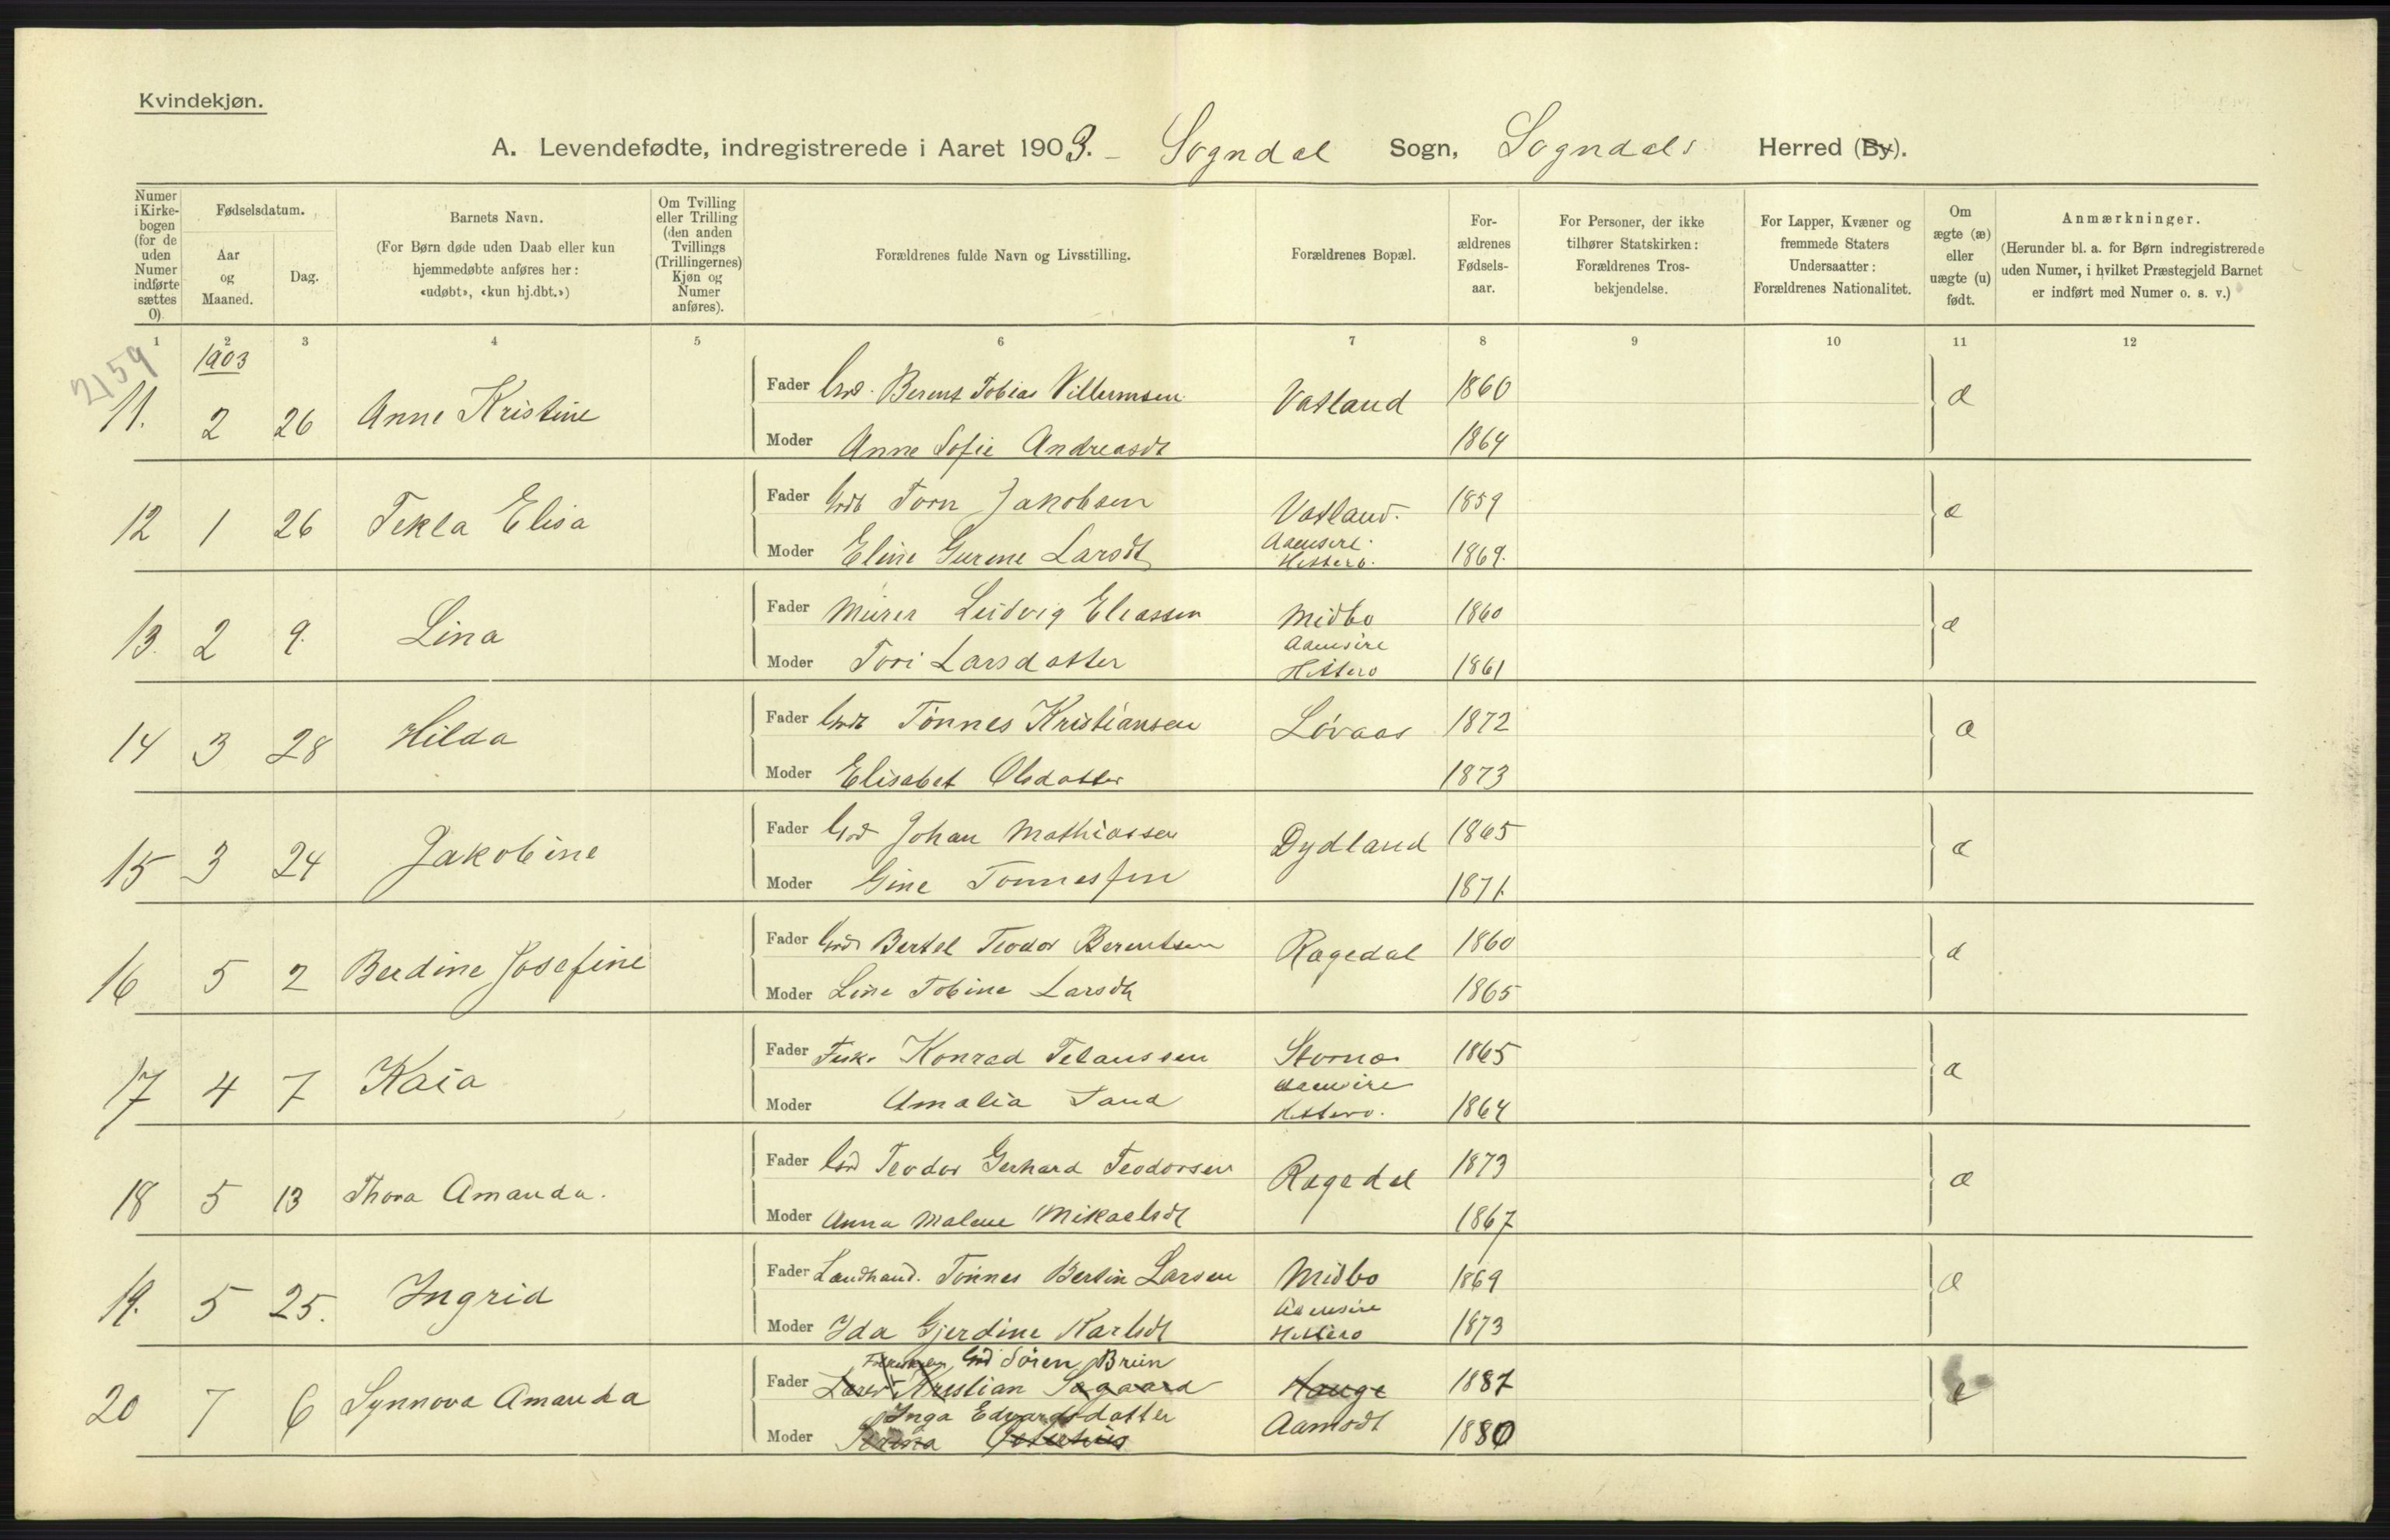 Kvindekjøn.
A. Levendefødte, indregistrerede i Aaret 1903. - Sogndal Sogn, Sogndals Herred (By).
Numer i Kirkebogen (for de uden Numer indførte sættes 0).
Fødselsdatum.
Aar og Maaned.
Dag.
Barnets Navn.
(For Børn døde uden Daab eller kun hjemmedøbte anføres her: «udøbt», «kun hj.dbt.»)
Om Tvilling eller Trilling (den anden Tvillings (Trillingernes) Kjøn og Numer anføres).
Forældrenes fulde Navn og Livsstilling.
Forældrenes Bopæl.
Forældrenes Fødselsaar.
For Personer, der ikke tilhører Statskirken: Forældrenes Trosbekjendelse.
For Lapper, Kvæner og fremmede Staters Undersaatter: Forældrenes Nationalitet.
Om ægte (æ) eller uægte (u) født.
Anmærkninger.
(Herunder bl. a. for Børn indregistrerede uden Numer, i hvilket Præstegjeld Barnet er indført med Numer o. s. v.)
1 2 3 4 5 6 7 8 9 10 11 12
2159
1903
11. 2 26 Anne Kristine Fader Grd. Berent Tobias Villumsen Vatland 1860 æ
Moder Anne Sofie Andreasdt 1864
12 1 26 Tekla Elisa Fader Grdb Torn Jakobsen Vatland. 1859 æ
Moder Eline Gurine Larsdt Aamsire Hitterø. 1869.
13. 2 9. Lina Fader Murer Ludvig Eliassen Midbø 1860 æ
Moder Tori Larsdatter Aamsire Hitterø 1861
14 3 28 Hilda Fader Grdb Tönnes Kristiansen Løvaas 1872 æ
Moder Elisabet Olsdatter 1873
15 3 24 Jakobine Fader Grd Johan Mathiassen Dydland 1865 æ
Moder Gine Tonnessen 1871.
16 5 2 Berdine Josefine Fader Grd Bertel Teodor Berentsen Rægedal 1860 æ
Moder Line Tobine Larsdt 1865
17 4 7 Kaia Fader Fisk. Konrad Telaussen Stornæs 1865 æ
Moder Amalia Tand Aamsire Hitterø. 1864
18 5 13 Thora Amanda. Fader Grd Teodor Gerhard Teodorsen Rægedal 1873 æ
Moder Anna Malene Mikaelsdt 1867
19. 5 25. Ingrid Fader Landhand. Tönnes Bertin Larsen Midbø 1869 æ
Moder Ida Gjerdine Karlsdt Aamsire Hitterø 1873
Grd Sören Bruin
20 7 6 Synnova Amanda Fader Lærer Kristian Søgaard Hauge 1887 æ
Inga Edvardsdatter Aamodt
Moder 1880